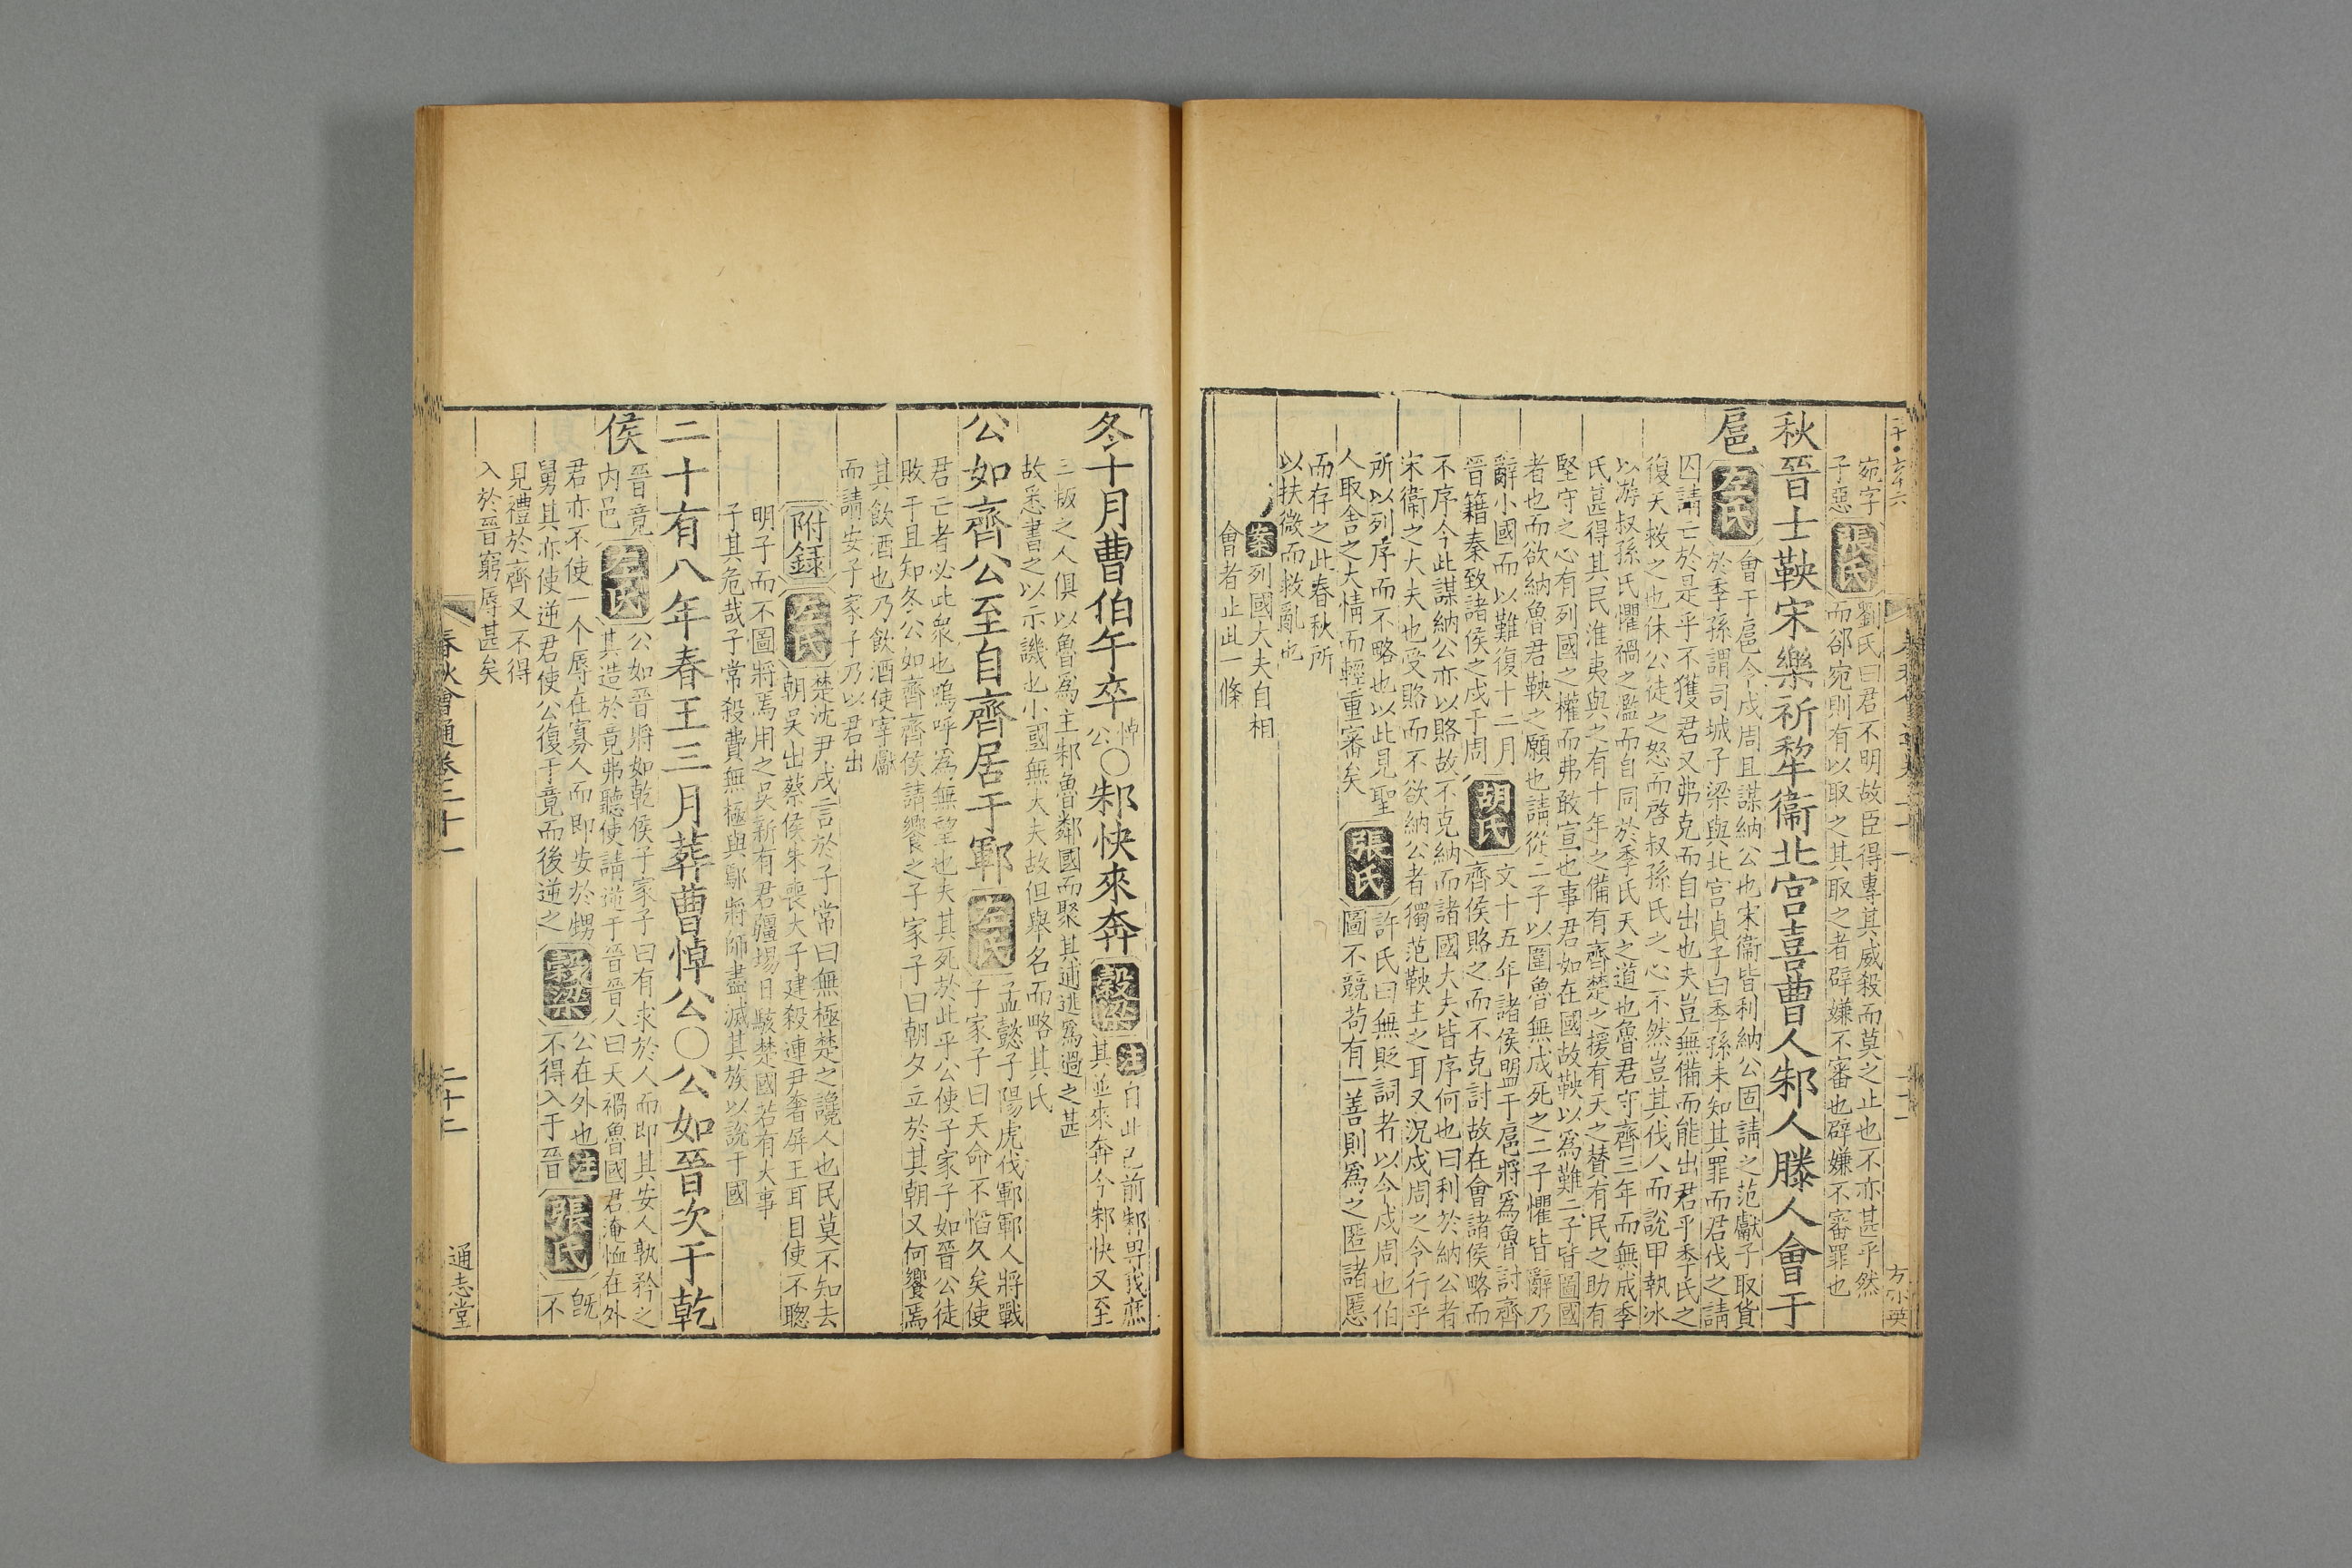 宛字
子惡
張氏
劉氏曰君不明故臣得專其威殺而莫之止也不亦甚乎然
而郤宛則有以取之其取之者辟嫌不審也辟嫌不審罪也
秋晉士鞅宋樂祁犂衞北宮喜曹人邾人滕人會于
扈
左氏
會于扈令戍周且謀納公也宋衞皆利納公固請之范獻子取貨
於季孫謂司城子梁與北宮貞子曰季孫未知其罪而君伐之請
囚請亡於是乎不獲君又弗克而自出也夫豈無備而能出君乎季氏之
復天救之也休公徒之怒而啓叔孫氏之心不然豈其伐人而說甲執冰
以游叔孫氏懼禍之濫而自同於季氏天之道也魯君守齊三年而無成季
氏甚得其民淮夷與之有十年之備有齊楚之援有天之賛有民之助有
堅守之心有列國之權而弗敢宣也事君如在國故鞅以爲難二子皆圖國
者也而欲納魯君鞅之願也請從二子以圍魯無成死之二子懼皆辭乃
辭小國而以難復十二月
晉籍秦致諸侯之戍于周
胡氏
文十五年諸侯盟于扈將爲魯討齊
齊侯賂之而不克討故在會諸侯略而
不序今此謀納公亦以賂故不克納而諸國大夫皆序何也曰利於納公者
宋衞之大夫也受賂而不欲納公者獨范鞅主之耳又況戍周之令行乎
所以列序而不略也以此見聖
人取舍之大情而輕重審矣
張氏
許氏曰無貶詞者以令戍周也伯
圖不競苟有一善則爲之匿諸慝
而存之此春秋所
以扶微而救亂也
案
列國大夫自相
會者止此一條
方小英
冬十月曹伯午卒
悼
公
〇邾快來奔
穀梁
注
自此已前邾畀我庶
其並來奔今邾快又至
三叛之人俱以魯爲主邾魯鄰國而聚其逋逃爲過之甚
故悉書之以示譏也小國無大夫故但舉名而略其氏
公如齊公至自齊居于鄆
左氏
孟懿子陽虎伐鄆鄆人將戰
子家子曰天命不慆久矣使
君亡者必此衆也嗚呼爲無望也夫其死於此乎公使子家子如晉公徒
敗于且知冬公如齊齊侯請饗之子家子曰朝夕立於其朝又何饗焉
其飲酒也乃飲酒使宰獻
而請安子家子乃以君出
附録
左氏
楚沈尹戌言於子常曰無極楚之讒人也民莫不知去
朝吳出蔡侯朱喪大子建殺連尹奢屏王耳目使不聦
明子而不圖將焉用之吳新有君疆埸日駭楚國若有大事
子其危哉子常殺費無極與鄢將師盡滅其族以說于國
二十有八年春王三月葬曹悼公〇公如晉次于乾
侯
晉竟
内邑
左氏
公如晉將如乾侯子家子曰有求於人而即其安人孰矜之
其造於竟弗聽使請逆于晉晉人曰天禍魯國君淹恤在外
君亦不使一个辱在寡人而即安於甥
舅其亦使逆君使公復于竟而後逆之
穀梁
公在外也
不得入于晉
注
張氏
旣
不
見禮於齊又不得
入於晉窮辱甚矣
春秋會通卷二十一
二十二
通志堂